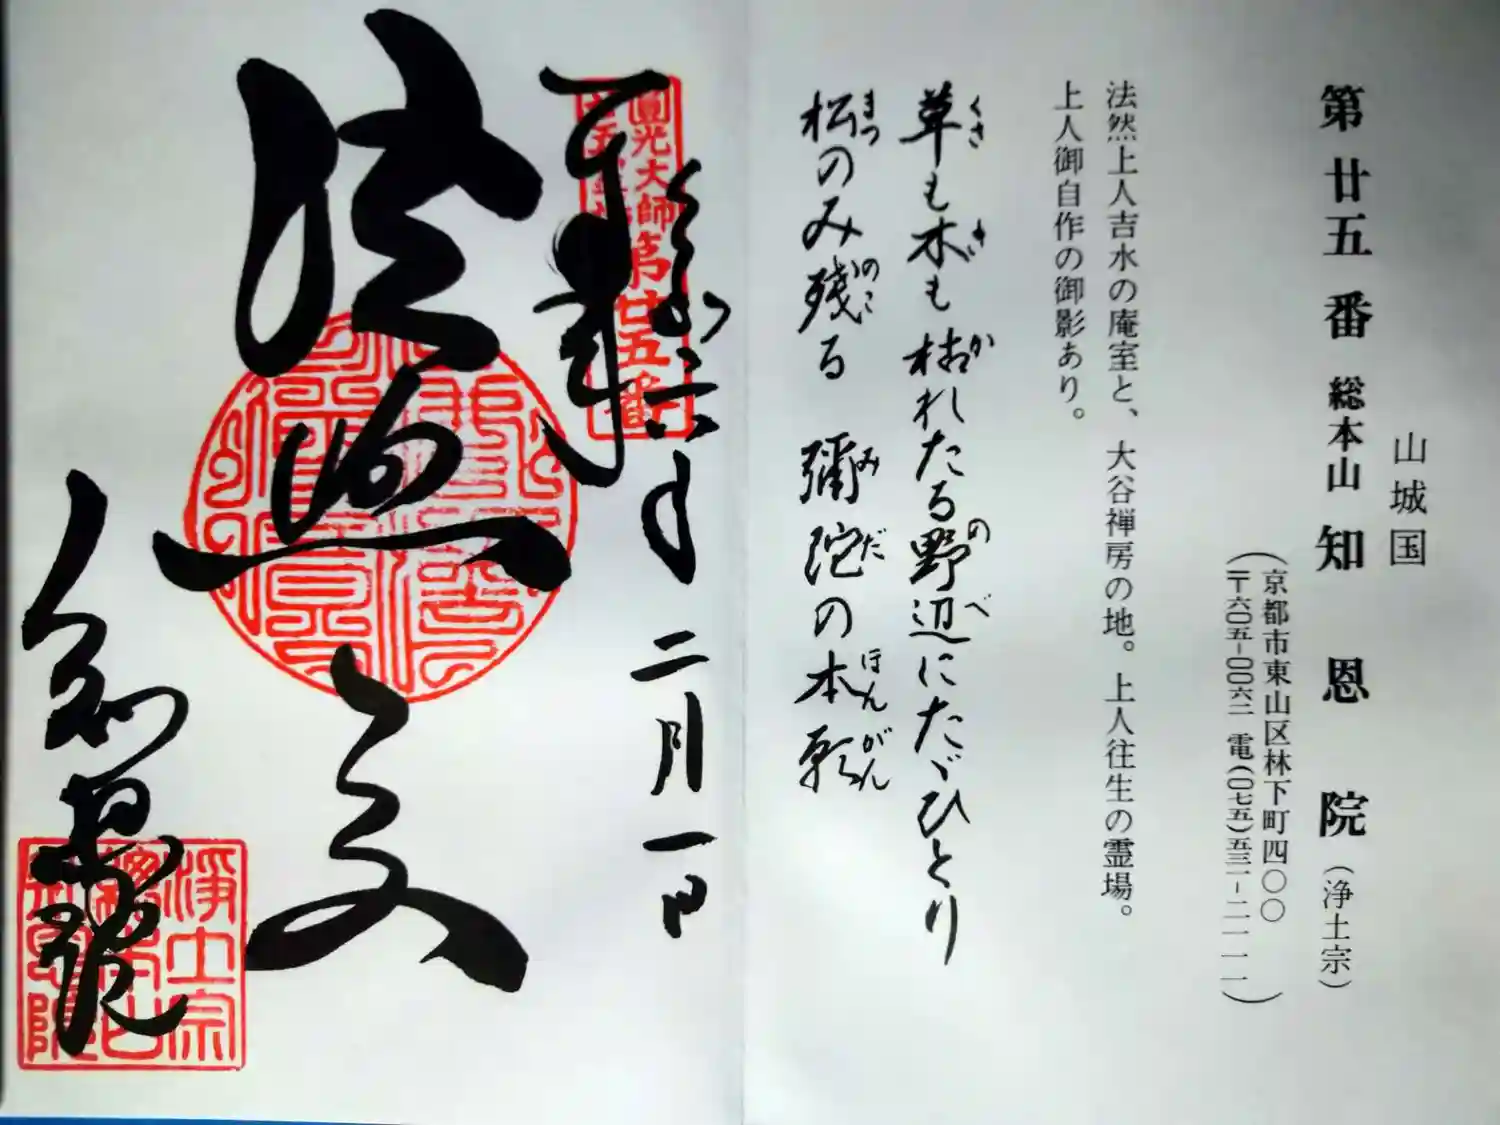 山城国
第廿五番 総本山 知恩院（浄土宗）
（京都市東山区林下町四〇〇
〒六〇五-〇〇六二 電(〇七五)五三一-二一一一）
法然上人吉水の庵室と、大谷禅房の地。上人往生の霊場。
上人御自作の御影あり。
草も木も枯れたる野辺にたゞひとり
くさ き か のべ
松のみ残る 彌陀の本願
まつ のこ みだ ほんがん
圓光大師第廿五番
二月一日
知恩院
浄土宗
総本山
知恩院